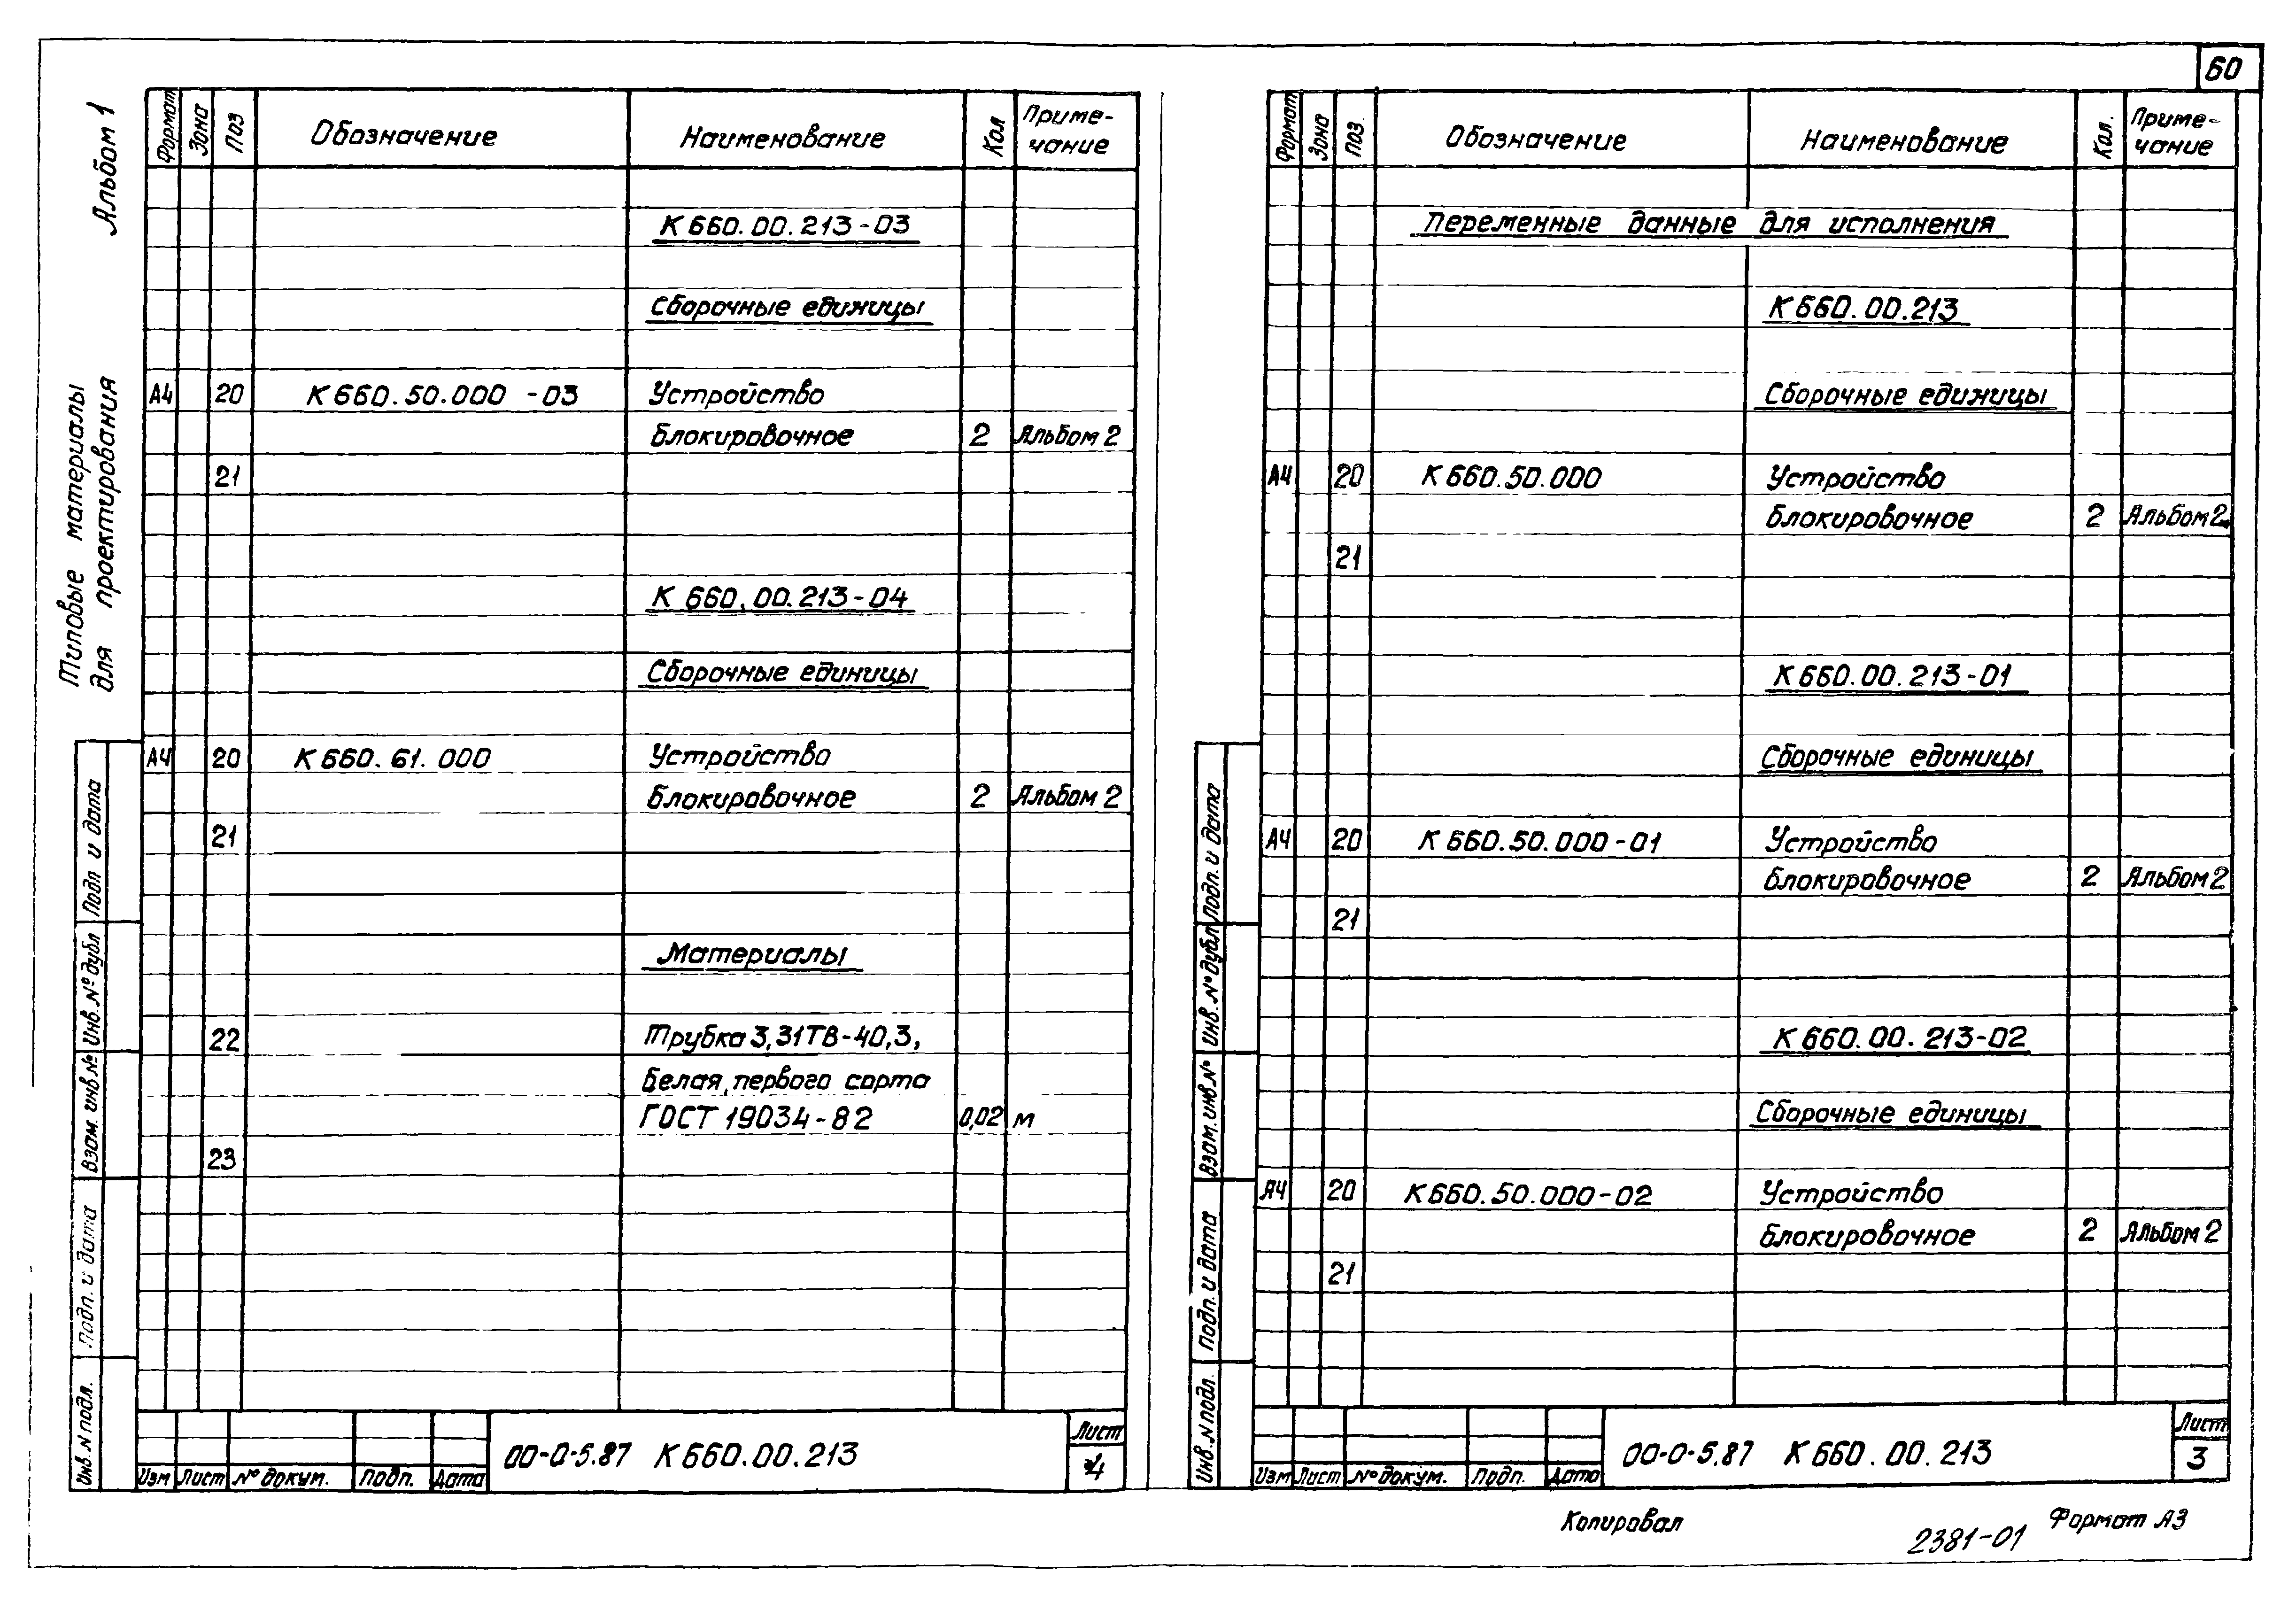 60
Альбом 1
Типовые материалы
для проектирования
Формат Зона Поз Обозначение Наименование Кол Приме-
чание
К 660.00.213-03
Сборочные единицы
А4 20 К 660.50.000 -03 Устройство
блокировочное 2 Альбом 2
21
К 660.00.213-04
Сборочные единицы
А4 20 К 660.61.000 Устройство
блокировочное 2 Альбом 2
21
Материалы
22 Трубка 3,31ТВ-40,3,
белая, первого сорта
ГОСТ 19034-82 0,02 м
23
Подп и дата
Инв. № дубл
Взам. инв №
Подп. и дата
Инв. N подл.
Изм Лист № докум. Подп. Дата
00-0-5.87 К 660.00.213
Лист
4
Формат Зона Поз. Обозначение Наименование Кол. Приме-
чание
Переменные данные для исполнения
К 660.00.213
Сборочные единицы
А4 20 К 660.50.000 Устройство
блокировочное 2 Альбом 2
21
К 660.00.213-01
Сборочные единицы
А4 20 К 660.50.000-01 Устройство
блокировочное 2 Альбом 2
21
К 660.00.213-02
Сборочные единицы
А4 20 К 660.50.000-02 Устройство
блокировочное 2 Альбом 2
21
Подп. и дата
Инв. № дубл
Взам. инв. №
Подп. и дата
Инв. N подл.
Изм Лист № докум. Подп. Дата
00-0-5.87 К 660.00.213
Лист
3
Копировал
2381-01
Формат А3